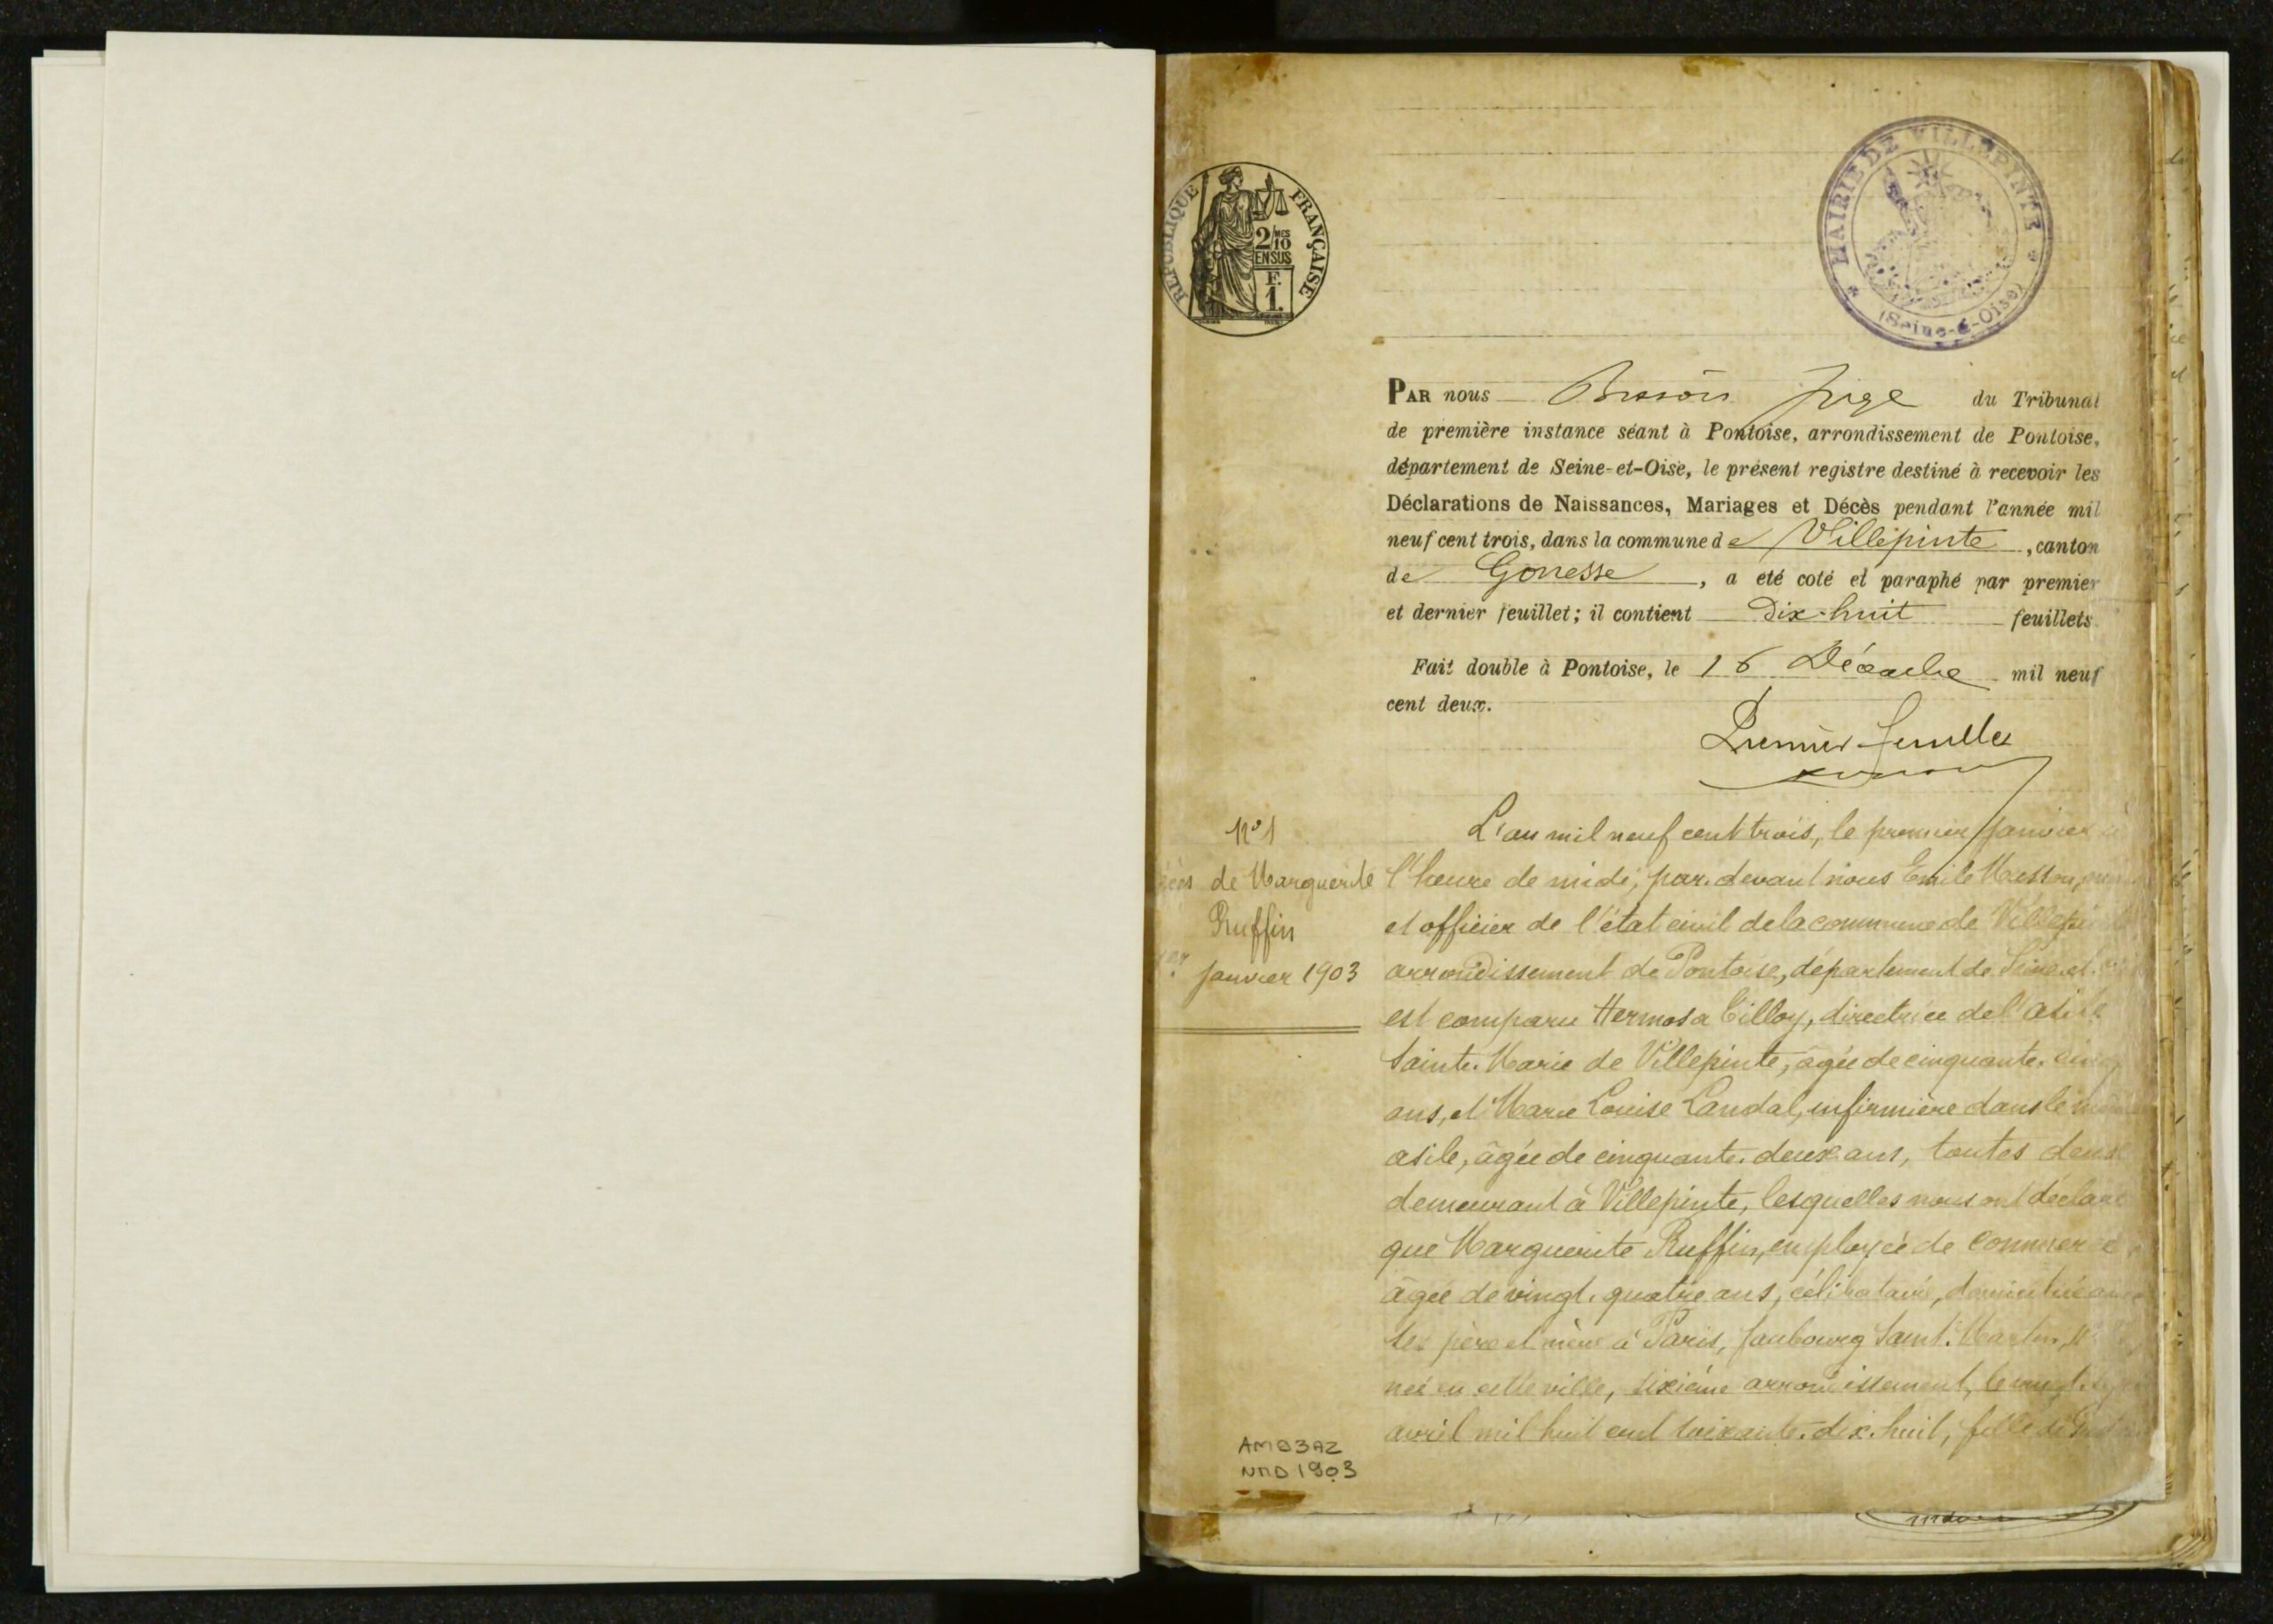 RÉPUBLIQUE FRANÇAISE
2/10 MES
EN SUS
F.
1.
MAIRIE DE VILLEPINTE
(Seine-&-Oise)
PAR nous Juge du Tribunal
de première instance séant à Pontoise, arrondissement de Pontoise,
département de Seine-et-Oise, le présent registre destiné à recevoir les
Déclarations de Naissances, Mariages et Décès pendant l'année mil
neuf cent trois, dans la commune de Villepinte, canton
de Gonesse, a été coté et paraphé par premier
et dernier feuillet; il contient Dix-huit feuillets.
Fait double à Pontoise, le 16 Décembre mil neuf
cent deux.
Premier feuillet
N° 1
de Marguerite
Ruffin
1er Janvier 1903
L'an mil neuf cent trois, le premier Janvier à
l'heure de midi, par-devant nous Emile
et officier de l'état civil de la commune de Villepinte
arrondissement de Pontoise, département de Seine-et-
est comparu Hermosa Tilloy, directrice de l'asile
Sainte-Marie de Villepinte, âgée de cinquante-cinq
ans, et Marie Louise Landal, infirmière dans le même
asile, âgée de cinquante-deux ans, toutes deux
demeurant à Villepinte, lesquelles nous ont déclaré
que Marguerite Ruffin, employée de commerce
âgée de vingt-quatre ans, célibataire, domiciliée avec
ses père et mère à Paris, faubourg Saint-Martin, N°
née en cette ville, dixième arrondissement, le vingt-
avril mil huit cent soixante-dix-huit, fille de
AM93AZ
NMD 1903